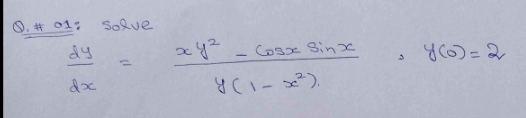 Q.# 01: Solve
dy/dx = (xy² - Cosx Sinx) / (y(1 - x²)). , y(0) = 2